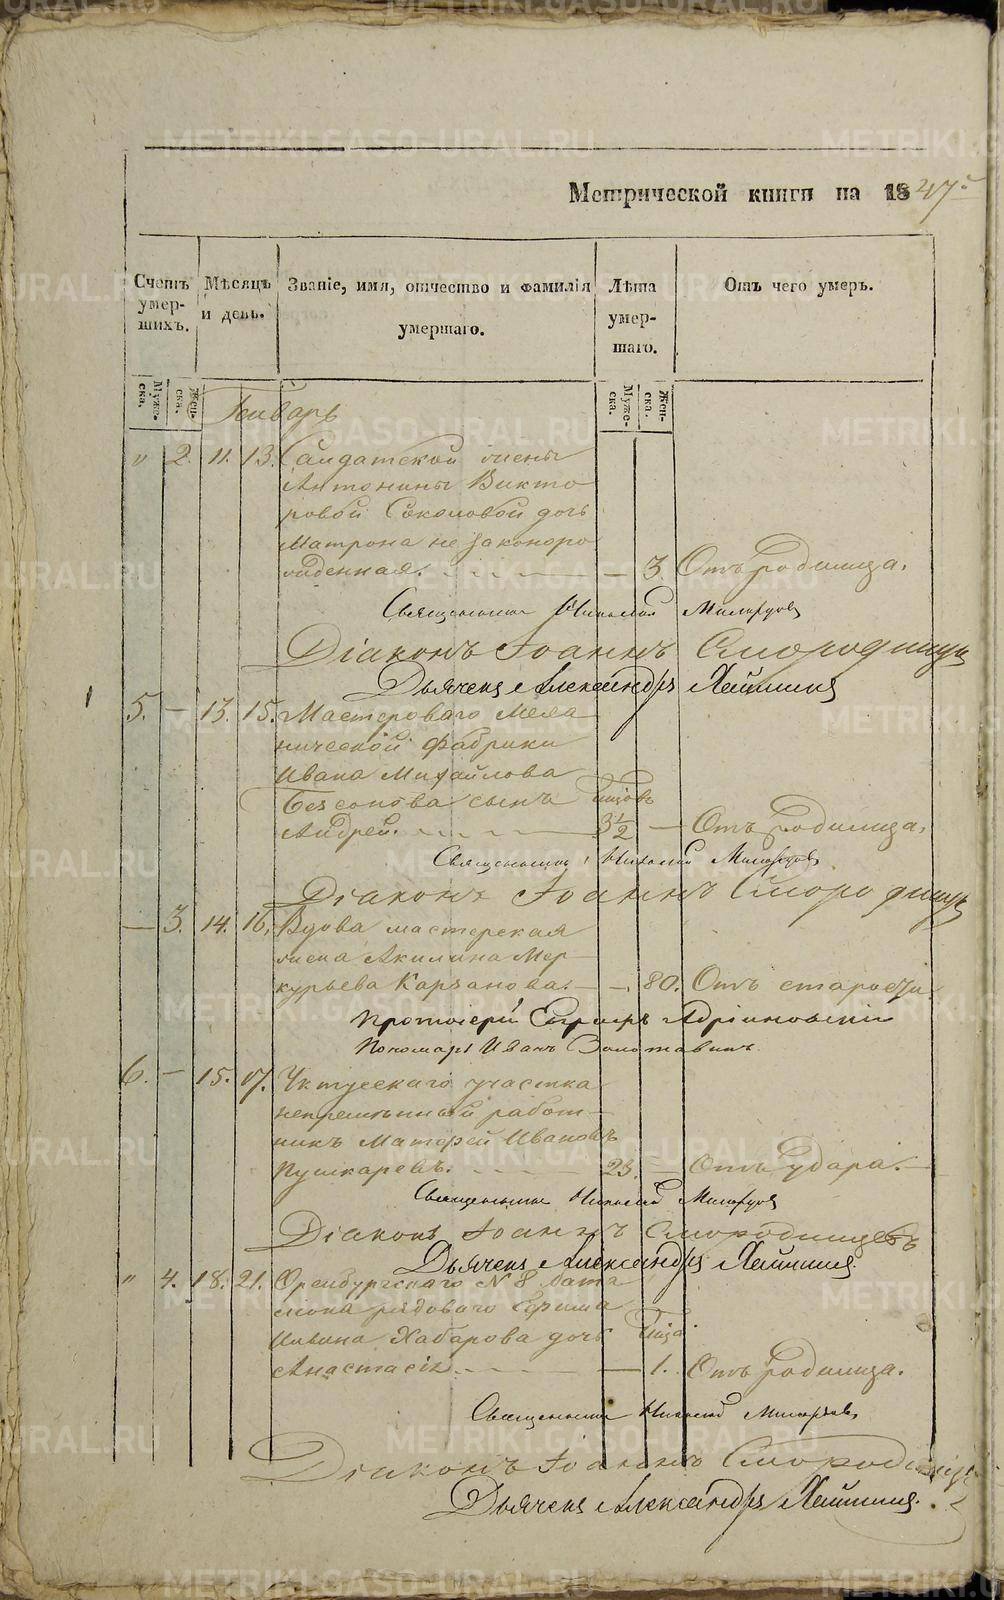 Метрической книги на 1847й
Счетъ умер-шихъ.
Мѣсяцъ и день.
Званіе, имя, отчество и фамилія умершаго.
Лѣта умер-шаго.
Отъ чего умеръ.
Муже-ска. Жен-ска.
Муже-ска. Жен-ска.
Январь
" 2. 11. 13. Салдатской жены
Антонины Викто
ровой Соколовой дочь
Матрона не законоро
жденная. — 3. Отъ родимца.
Священникъ Николай
Діаконъ Іоаннъ Смородинцевъ
Дьячекъ Александръ
5. — 13. 15. Мастероваго Меха
нической Фабрики
Ивана Михайлова
Безсонова сынъ
Андрей. 3½ — Отъ Родимца.
Священникъ Николай
Діаконъ Іоаннъ Смородинцевъ
— 3. 14. 16. Вдова мастерская
жена Акилина Мер-
курьева Карзанова. — 80. Отъ старости.
Протоіерей
Пономарь Иванъ Золотавинъ.
6. — 15. 17. Уктусскаго участка
непремѣнный работ-
никъ Матфей Ивановъ
Пушкаревъ. 23. — Отъ Удара.
Священникъ Николай
Діаконъ Іоаннъ Смородинцевъ
Дьячекъ Александръ
" 4. 18. 21. Оренбургскаго N 8 бата
ліона рядоваго Ефима
Ильина Хабарова дочь
Анастасія. — 1. Отъ Родимца.
Священникъ Николай
Діаконъ Іоаннъ Смородинцевъ
Дьячекъ Александръ
METRIKI.GASO-URAL.RU